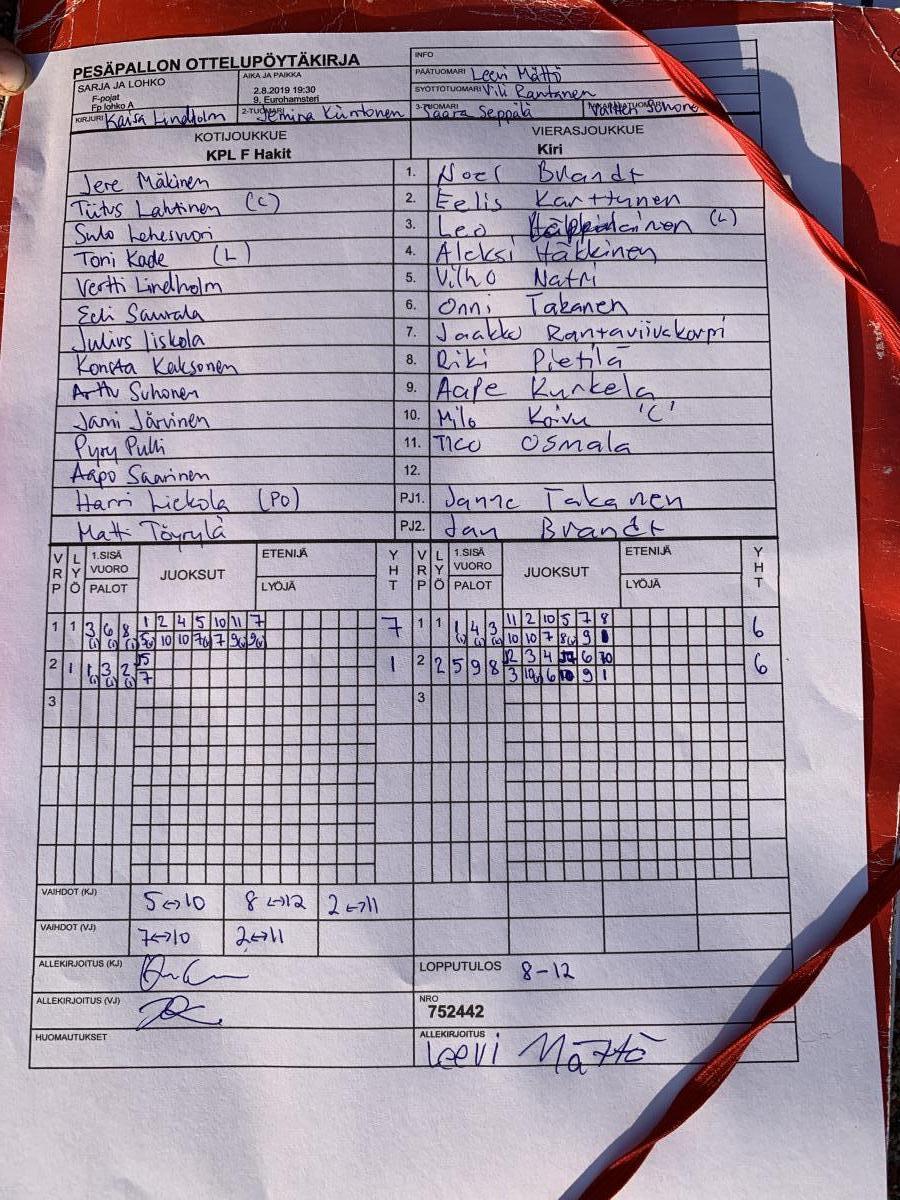 PESÄPALLON OTTELUPÖYTÄKIRJA
INFO
SARJA JA LOHKO
F-pojat
Fp lohko A
AIKA JA PAIKKA
2.8.2019 19:30
9, Eurohamsteri
PÄÄTUOMARI Leevi Mättö
SYÖTTÖTUOMARI Vili Rantanen
KIRJURI Kaisa Lindholm
2-TUOMARI Jemina Kiintonen
3-TUOMARI Saara Seppälä
KOTIJOUKKUE
KPL F Hakit
VIERASJOUKKUE
Kiri
Jere Mäkinen 1. Noel Brandt
Tiitus Lahtinen (C) 2. Eelis Karttunen
Sulo Lehesvuori 3. Leo (L)
Toni Kade (L) 4. Aleksi Häkkinen
Vertti Lindholm 5. Vilho Natri
Eeli Saurala 6. Onni Takanen
Julius Iiskola 7. Jaakko Rantaviivakorpi
Konsta Kaksonen 8. Riki Pietilä
Arttu Suhonen 9. Aape Kunkela
Jami Järvinen 10. Milo Koivu 'C'
Pyry Pulli 11. Tico Osmala
Aapo Saarinen 12.
Harri Liekola (PO) PJ1. Janne Takanen
Matti Töyrylä PJ2. Jan Brandt
VRP LYÖ 1.SISÄ VUORO PALOT JUOKSUT ETENIJÄ LYÖJÄ YHT VRP LYÖ 1.SISÄ VUORO PALOT JUOKSUT ETENIJÄ LYÖJÄ YHT
1 1 3 6 8 1 2 4 5 10 11 7 7 1 1 1 4 3 11 2 10 5 7 8 6
2 1 1 3 2 1 2 2 5 9 8 6
3 3
VAIHDOT (KJ) 5↔10 8↔12 2↔11
VAIHDOT (VJ) 7↔10 2↔11
ALLEKIRJOITUS (KJ)
LOPPUTULOS 8-12
ALLEKIRJOITUS (VJ)
NRO
752442
HUOMAUTUKSET
ALLEKIRJOITUS
Leevi Mättö